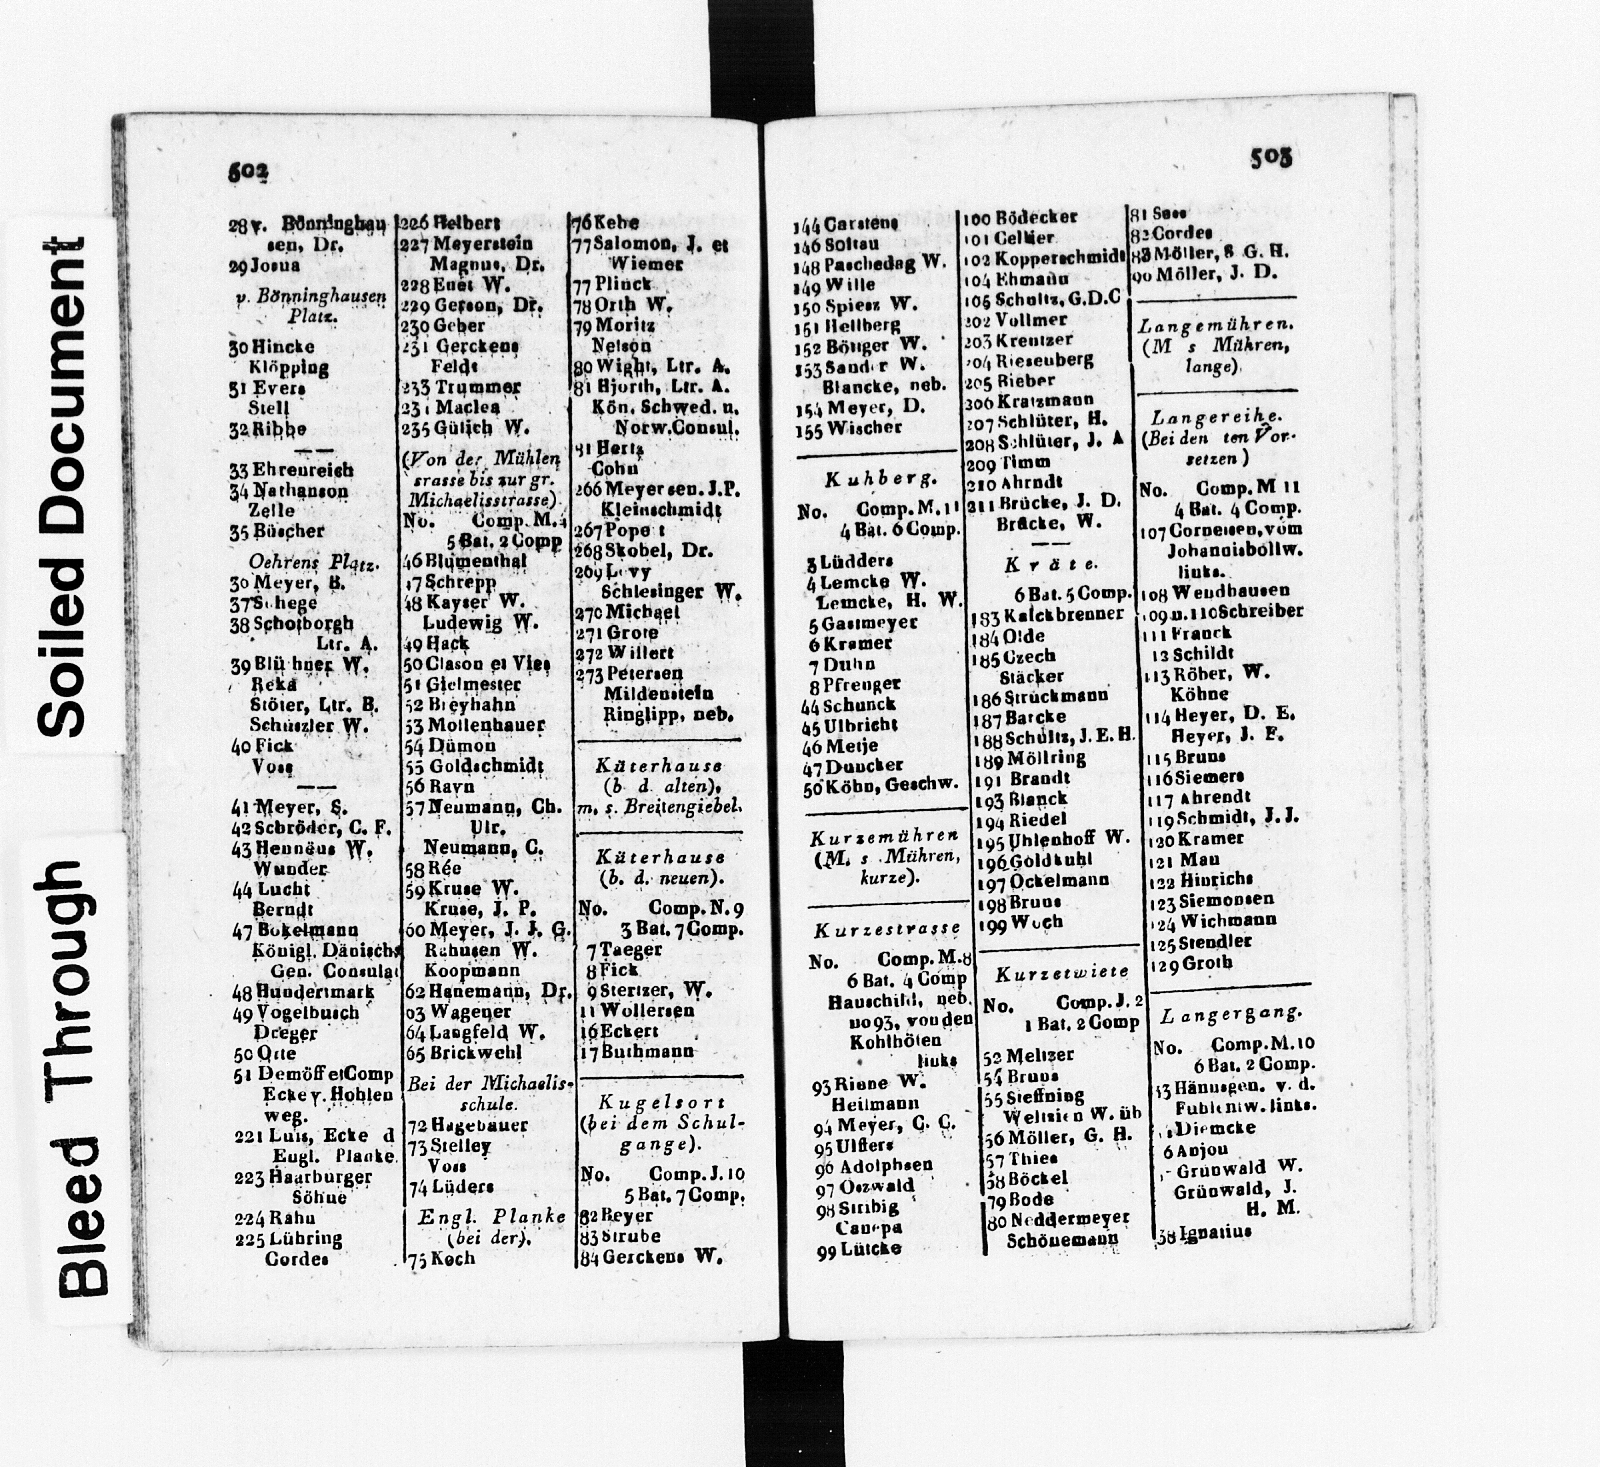 Soiled Document
Bleed Through
502
28 v. Bönninghau
sen, Dr.
29 Josua
v. Bönninghausen
Platz.
30 Hincke
Klöpping
31 Evers
Stell
32 Ribbe
33 Ehrenreich
34 Nathanson
Zelle
35 Büscher
Oehrens Platz.
30 Meyer, B.
37 S hege
38 Schotborgh
Ltr. A.
39 Blü hner W.
Reka
Stöter, Ltr. B.
Schützler W.
40 Fick
Voss
41 Meyer, S.
42 Schröder, C. F.
43 Hennäus W.
Wunder
44 Lucht
Berndt
47 Bokelmann
Königl. Dänisch
Gen. Consulat
48 Hundertmark
49 Vogelbusch
Dreger
50 Otte
51 Demöff et Comp
Ecke v. Hohlen
weg.
221 Luis, Ecke d
Engl. Planke.
223 Haarburger
Söhne
224 Rahn
225 Lühring
Cordes
226 Helbert
227 Meyerstein
Magnus, Dr.
228 Enet W.
229 Gerson, Dr.
230 Geber
231 Gerckens
Feldt
233 Trummer
23 Maclea
235 Gülich W.
(Von der Mühlen
srasse bis zur gr.
Michaelisstrasse)
No. Comp. M.
5 Bat. 2 Comp
46 Blumenthal
47 Schrepp
48 Kayser W.
Ludewig W.
49 Hack
50 Clason et Vies
51 Gielmester
52 Bleyhahn
53 Mollenhauer
54 Dümon
55 Goldschmidt
56 Ravn
57 Neumann, Ch.
Ulr.
Neumann, C.
58 Rée
59 Kruse W.
Kruse, J. P.
60 Meyer, J. J. G.
Rahusen W.
Koopmann
62 Hanemann, Dr.
63 Wagener
64 Langfeld W.
65 Brickwehl
Bei der Michaelis-
schule.
72 Hagebauer
73 Stelley
Voss
74 Lüders
Engl. Planke
(bei der).
75 Koch
76 Kebe
77 Salomon, J. et
Wiemer
77 Plinck
78 Orth W.
79 Moritz
Nelson
80 Wight, Ltr. A.
81 Hjorth, Ltr. A.
Kön. Schwed. u.
Norw. Consul.
81 Hertz
Cohn
266 Meyersen. J. P.
Kleinschmidt
267 Pope t
268 Skobel, Dr.
269 L vy
Schlesinger W.
270 Michael
271 Grote
272 Willert
273 Petersen
Mildenstein
Ringlipp, neb.
Küterhause
(b d. alten),
m. s. Breitengiebel.
Küterhause
(b. d. neuen).
No. Comp. N. 9
3 Bat. 7 Comp.
7 Taeger
8 Fick
9 Stertzer, W.
11 Wollersen
16 Eckert
17 Buthmann
Kugelsort
(bei dem Schul-
gange).
No. Comp. J. 10
5 Bat. 7 Comp.
82 Beyer
83 Strube
84 Gerckens W.
503
144 Carstens
146 Soltau
148 Paschedag W.
149 Wille
150 Spiesz W.
151 Hellberg
152 Böttger W.
153 Sand r W.
Blancke, neb.
154 Meyer, D.
155 Wischer
Kuhberg.
No. Comp. M. 11
4 Bat. 6 Comp.
3 Lüdders
4 Lemcke W.
Lemcke, H. W.
5 Gastmeyer
6 Kramer
7 Duhn
8 Pfrenger
44 Schunck
45 Ulbricht
46 Metje
47 Duncker
50 Köhn, Geschw.
Kurzemühren
(M. s. Mühren,
kurze).
Kurzestrasse
No. Comp. M. 8
6 Bat. 4 Comp
Hauschild, neb.
no 93, von den
Kohlhöfen
links
93 Rinne W.
Heilmann
94 Meyer, C. C.
95 Ulffers
96 Adolphsen
97 Oszwald
98 Stribig
Canepa
99 Lütcke
100 Bödecker
101 Cellier
102 Kopperschmidt
104 Ehmann
105 Schultz, G. D. C
202 Vollmer
203 Kreutzer
204 Riesenberg
205 Rieber
206 Kratzmann
207 Schlüter, H.
208 Schlüter, J. A
209 Timm
210 Ahrndt
211 Brücke, J. D.
Brücke, W.
Kräte.
6 Bat. 5 Comp.
183 Kalckbrenner
184 Olde
185 Czech
Stäcker
186 Struckmann
187 Barcke
188 Schultz, J. E. H.
189 Möllring
191 Brandt
193 Blanck
194 Riedel
195 Uhlenhoff W.
196 Goldkuhl
197 Ockelmann
198 Bruns
199 Woch
Kurzetwiete
No. Comp. J. 2
1 Bat. 2 Comp
52 Meltzer
54 Bruns
55 Steffning
Weltzien W. üb
56 Möller, G. H.
57 Thies
58 Böckel
79 Bode
80 Neddermeyer
Schönemann
81 Sass
82 Cordes
83 Möller, S G. H.
90 Möller, J. D.
Langemühren.
(M s Mühren,
lange).
Langereihe.
(Bei den ten Vor-
setzen)
No. Comp. M 11
4 Bat. 4 Comp.
107 Cornelsen, vom
Johannisbollw.
links.
108 Wendhausen
109 u. 110 Schreiber
111 Franck
12 Schildt
113 Röber, W.
Köhne
114 Heyer, D. E.
Heyer, J. F.
115 Bruns
116 Siemers
117 Ahrendt
119 Schmidt, J. J.
120 Kramer
121 Mau
122 Hinrichs
123 Siemonsen
124 Wichmann
125 Stendler
129 Groth
Langergang.
No. Comp. M. 10
6 Bat. 2 Comp.
53 Hännsgen. v. d.
Fuhlentw. links.
Diemcke
6 Anjou
Grünwald W.
Grünwald, J.
H. M.
38 Ignatius